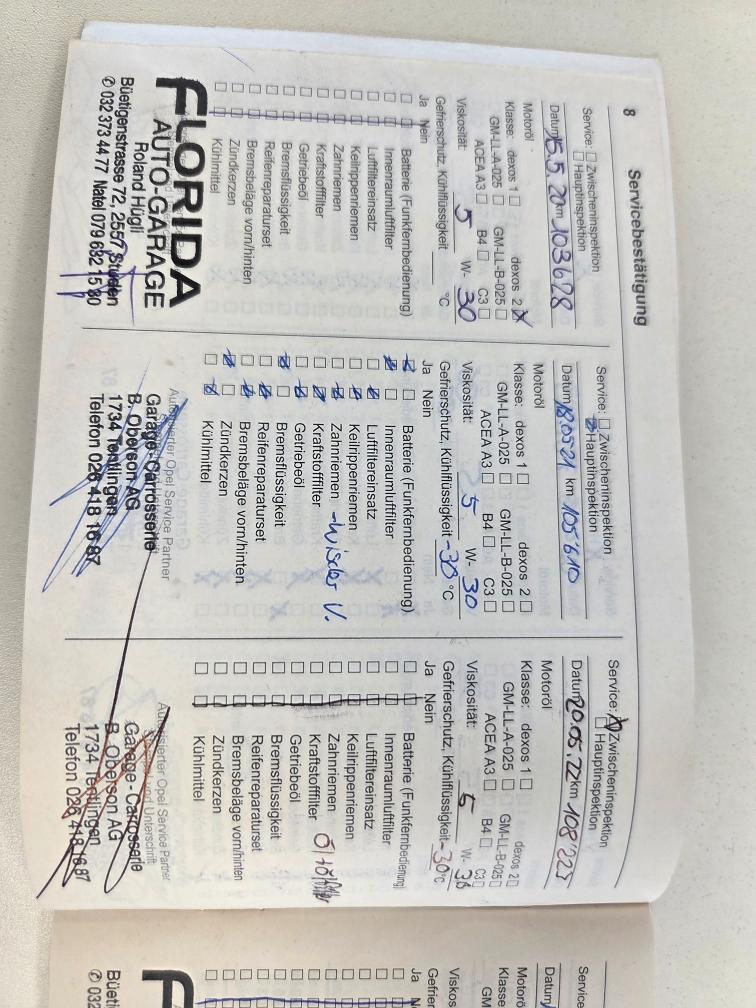 8
Servicebestätigung
Service: Zwischeninspektion
Hauptinspektion
Datum 15.5.20 km 103628
Motoröl
Klasse: dexos 1 dexos 2 X
GM-LL-A-025 GM-LL-B-025
ACEA A3 B4 C3
Viskosität 5 W- 30
Gefrierschutz, Kühlflüssigkeit °C
Ja Nein
Batterie (Funkfernbedienung)
Innenraumluftfilter
Luftfiltereinsatz
Keilrippenriemen
Zahnriemen
Kraftstofffilter
Getriebeöl
Bremsflüssigkeit
Reifenreparaturset
Bremsbeläge vorn/hinten
Zündkerzen
Kühlmittel
FLORIDA
AUTO-GARAGE
Roland Hügli
Büetigenstrasse 72, 2557 Studen
✆ 032 373 44 77 Natel 079 632 15 30
Service: Zwischeninspektion
Hauptinspektion
Datum 18.05.21 km 105'610
Motoröl
Klasse: dexos 1 dexos 2
GM-LL-A-025 GM-LL-B-025
ACEA A3 B4 C3
Viskosität: 5 W- 30
Gefrierschutz, Kühlflüssigkeit -30 °C
Ja Nein
Batterie (Funkfernbedienung)
Innenraumluftfilter
Luftfiltereinsatz
Keilrippenriemen
Zahnriemen - Wischer V.
Kraftstofffilter
Getriebeöl
Bremsflüssigkeit
Reifenreparaturset
Bremsbeläge vorn/hinten
Zündkerzen
Kühlmittel
Autorisierter Opel Service Partner
Garage-Carrosserie
B. Oberson AG
1734 Tentlingen
Telefon 026 418 16 87
Service: Zwischeninspektion
Hauptinspektion
Datum 20.05.22 km 108'225
Motoröl
Klasse: dexos 1 dexos 2
GM-LL-A-025 GM-LL-B-025
ACEA A3 B4 C3
Viskosität: 5 W- 30
Gefrierschutz, Kühlflüssigkeit -30 °C
Ja Nein
Batterie (Funkfernbedienung)
Innenraumluftfilter
Luftfiltereinsatz
Keilrippenriemen
Zahnriemen
Kraftstofffilter
Getriebeöl
Bremsflüssigkeit
Reifenreparaturset
Bremsbeläge vorn/hinten
Zündkerzen
Kühlmittel
Autorisierter Opel Service Partner
und Unterschrift
Garage - Carrosserie
B. Oberson AG
1734 Tentlingen
Telefon 026 418 16 87
Datum
Motoröl
Klasse
GM
Ja
✆ 032